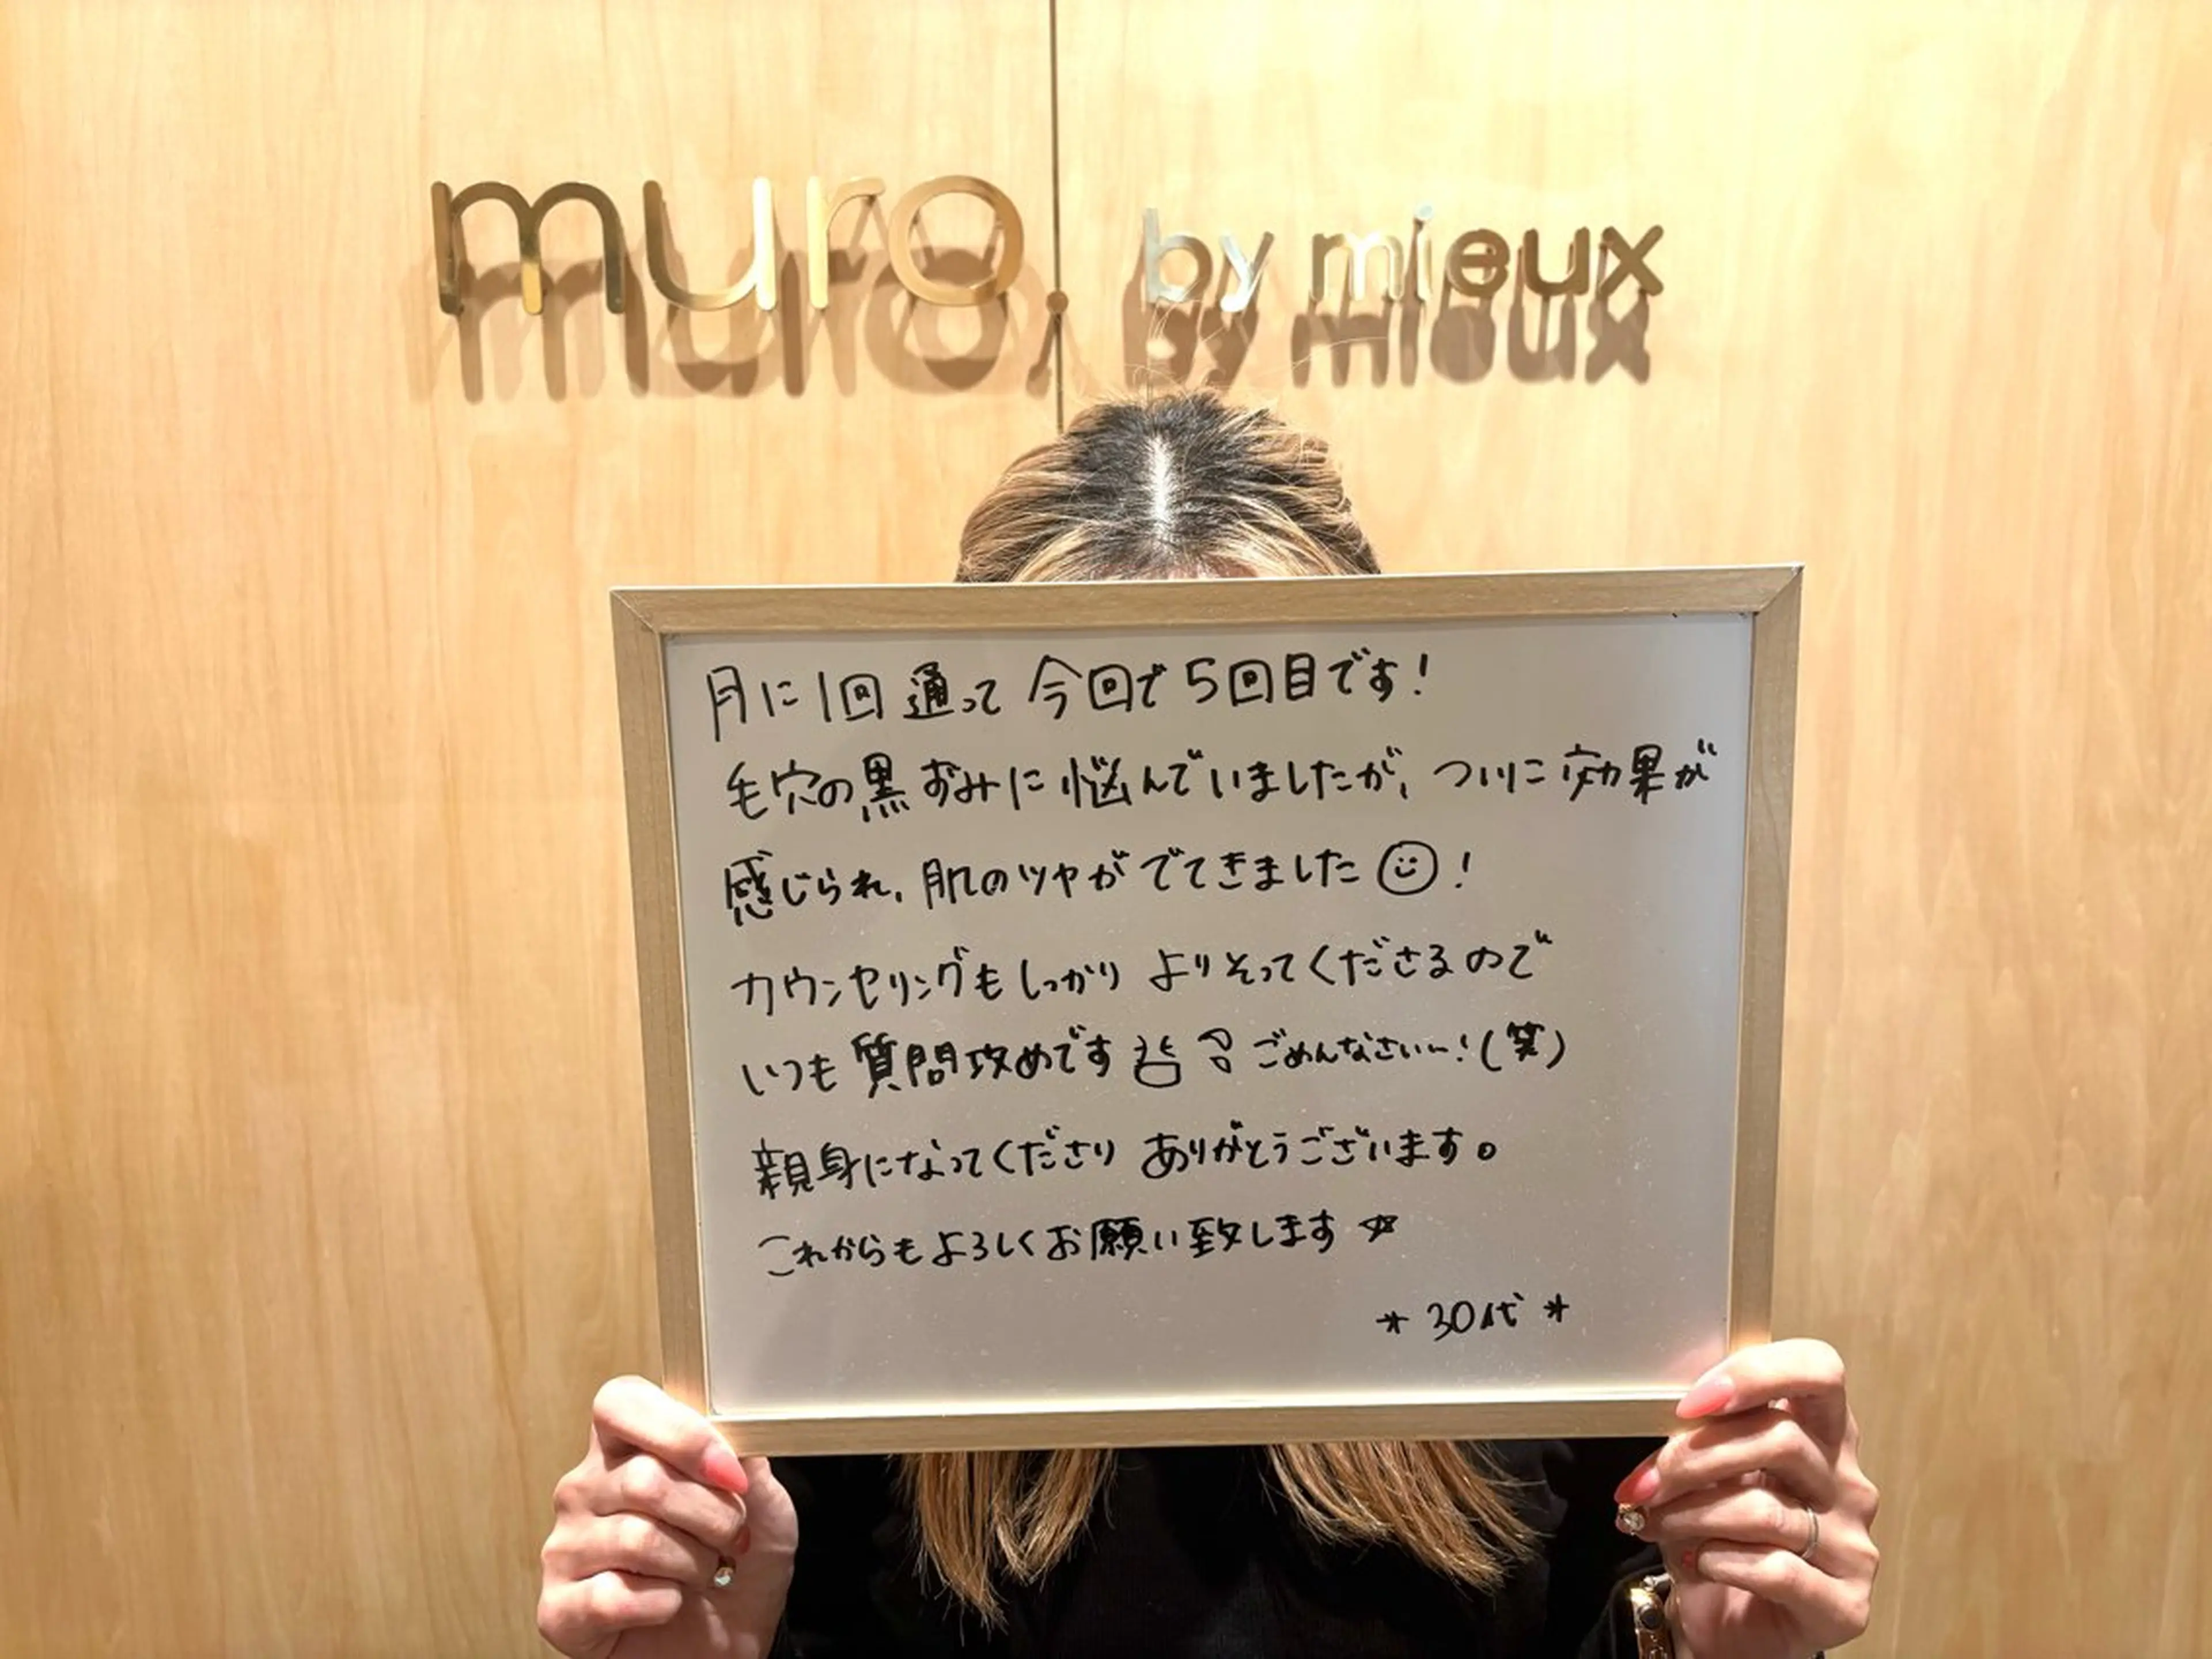 muro. by mieux
月に1回通って今回で5回目です!
毛穴の黒ずみに悩んでいましたが、ついに効果が
感じられ、肌のツヤがでてきました☺!
カウンセリングもしっかりよりそってくださるので
いつも質問攻めです ごめんなさい〜!(笑)
親身になってくださりありがとうございます。
これからもよろしくお願い致します☆
*30代*